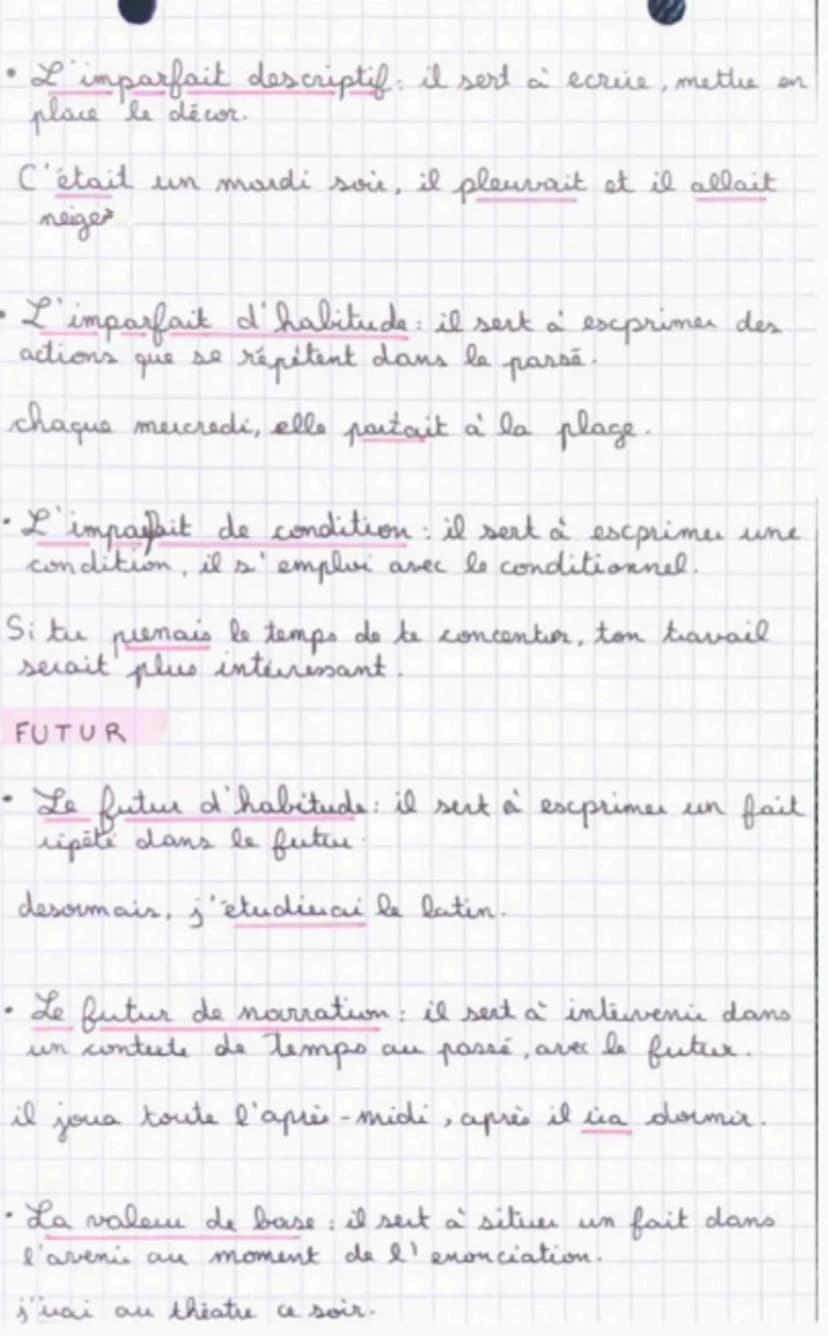 • L'imparfait descriptif : il sert à ecrire, mettre en
place le décor.
C'était un mardi soir, il pleuvait et il allait
neiger
• L'imparfait d'habitude : il sert à exprimer des
actions que se répètent dans le passé.
chaque mercredi, elle partait à la plage.
• L'imparfait de condition : il sert à exprimer une
condition, il s'emploi avec le conditionnel.
Si tu prenais le temps de te concentrer, ton travail
serait plus intéressant.
FUTUR
• Le futur d'habitude : il sert à exprimer un fait
répété dans le futur.
desormais, j'étudierai le latin.
• Le futur de narration : il sert à intervenir dans
un contexte de temps au passé, avec le futur.
il joua toute l'après-midi, après il ira dormir.
• La valeur de base : il sert à situer un fait dans
l'avenir au moment de l'enonciation.
j'irai au théatre ce soir.